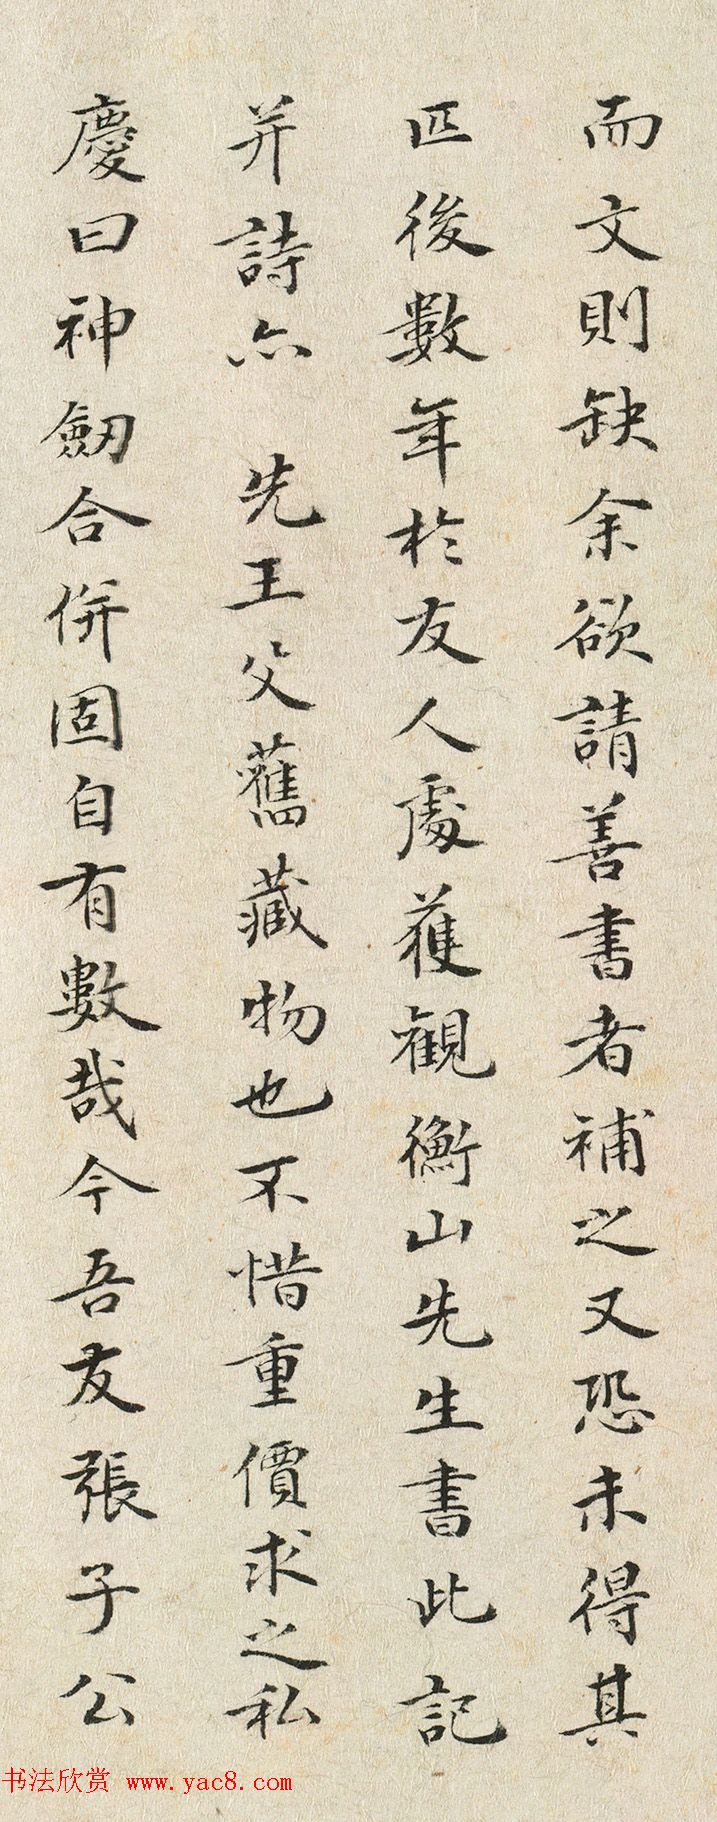 而文則缺余欲請善書者補之又恐未得其
匹後數年於友人處獲觀衡山先生書此記
并詩亦 先王父舊藏物也不惜重價求之私
慶曰神劔合併固自有數哉今吾友張子公
书法欣赏 www.yac8.com